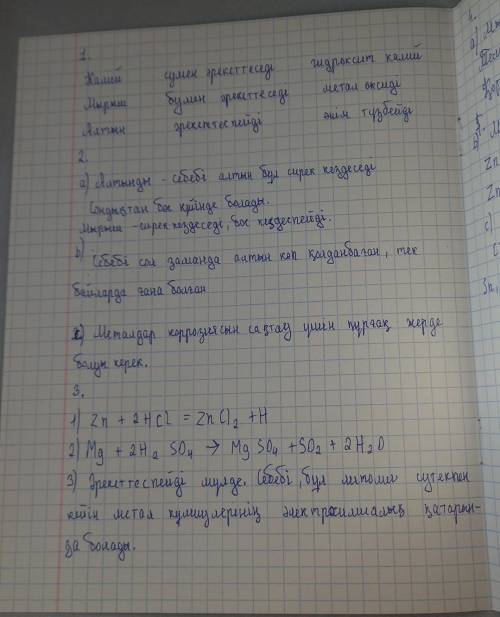 1.
Калий сумен әрекеттеседі гидроксит калий
Мырыш бумен әрекеттеседі метал оксиді
Алтын әрекеттеспейді өнім түзбейді
2.
a) Алтынды - себебі алтын бұл сирек кездеседі
Сондықтан бос күйінде болады.
Мырыш - сирек кездеседі, бос кездеспейді.
b)
Себебі сол заманда алтын көп қолданбаған, тек
байларда ғана болған
c) Металдар коррозиясын сақтау үшін құрғақ жерде
болуы керек.
3.
1) Zn + 2HCl = ZnCl2 + H
2) Mg + 2H2 SO4 → Mg SO4 + SO2 + 2H2O
3) Әрекеттеспейді мүлде. Себебі, бұл сутекпен
кейін метал электрохимиалық қатарын-
да болады.
1.
a)
Zn
Zn
c)